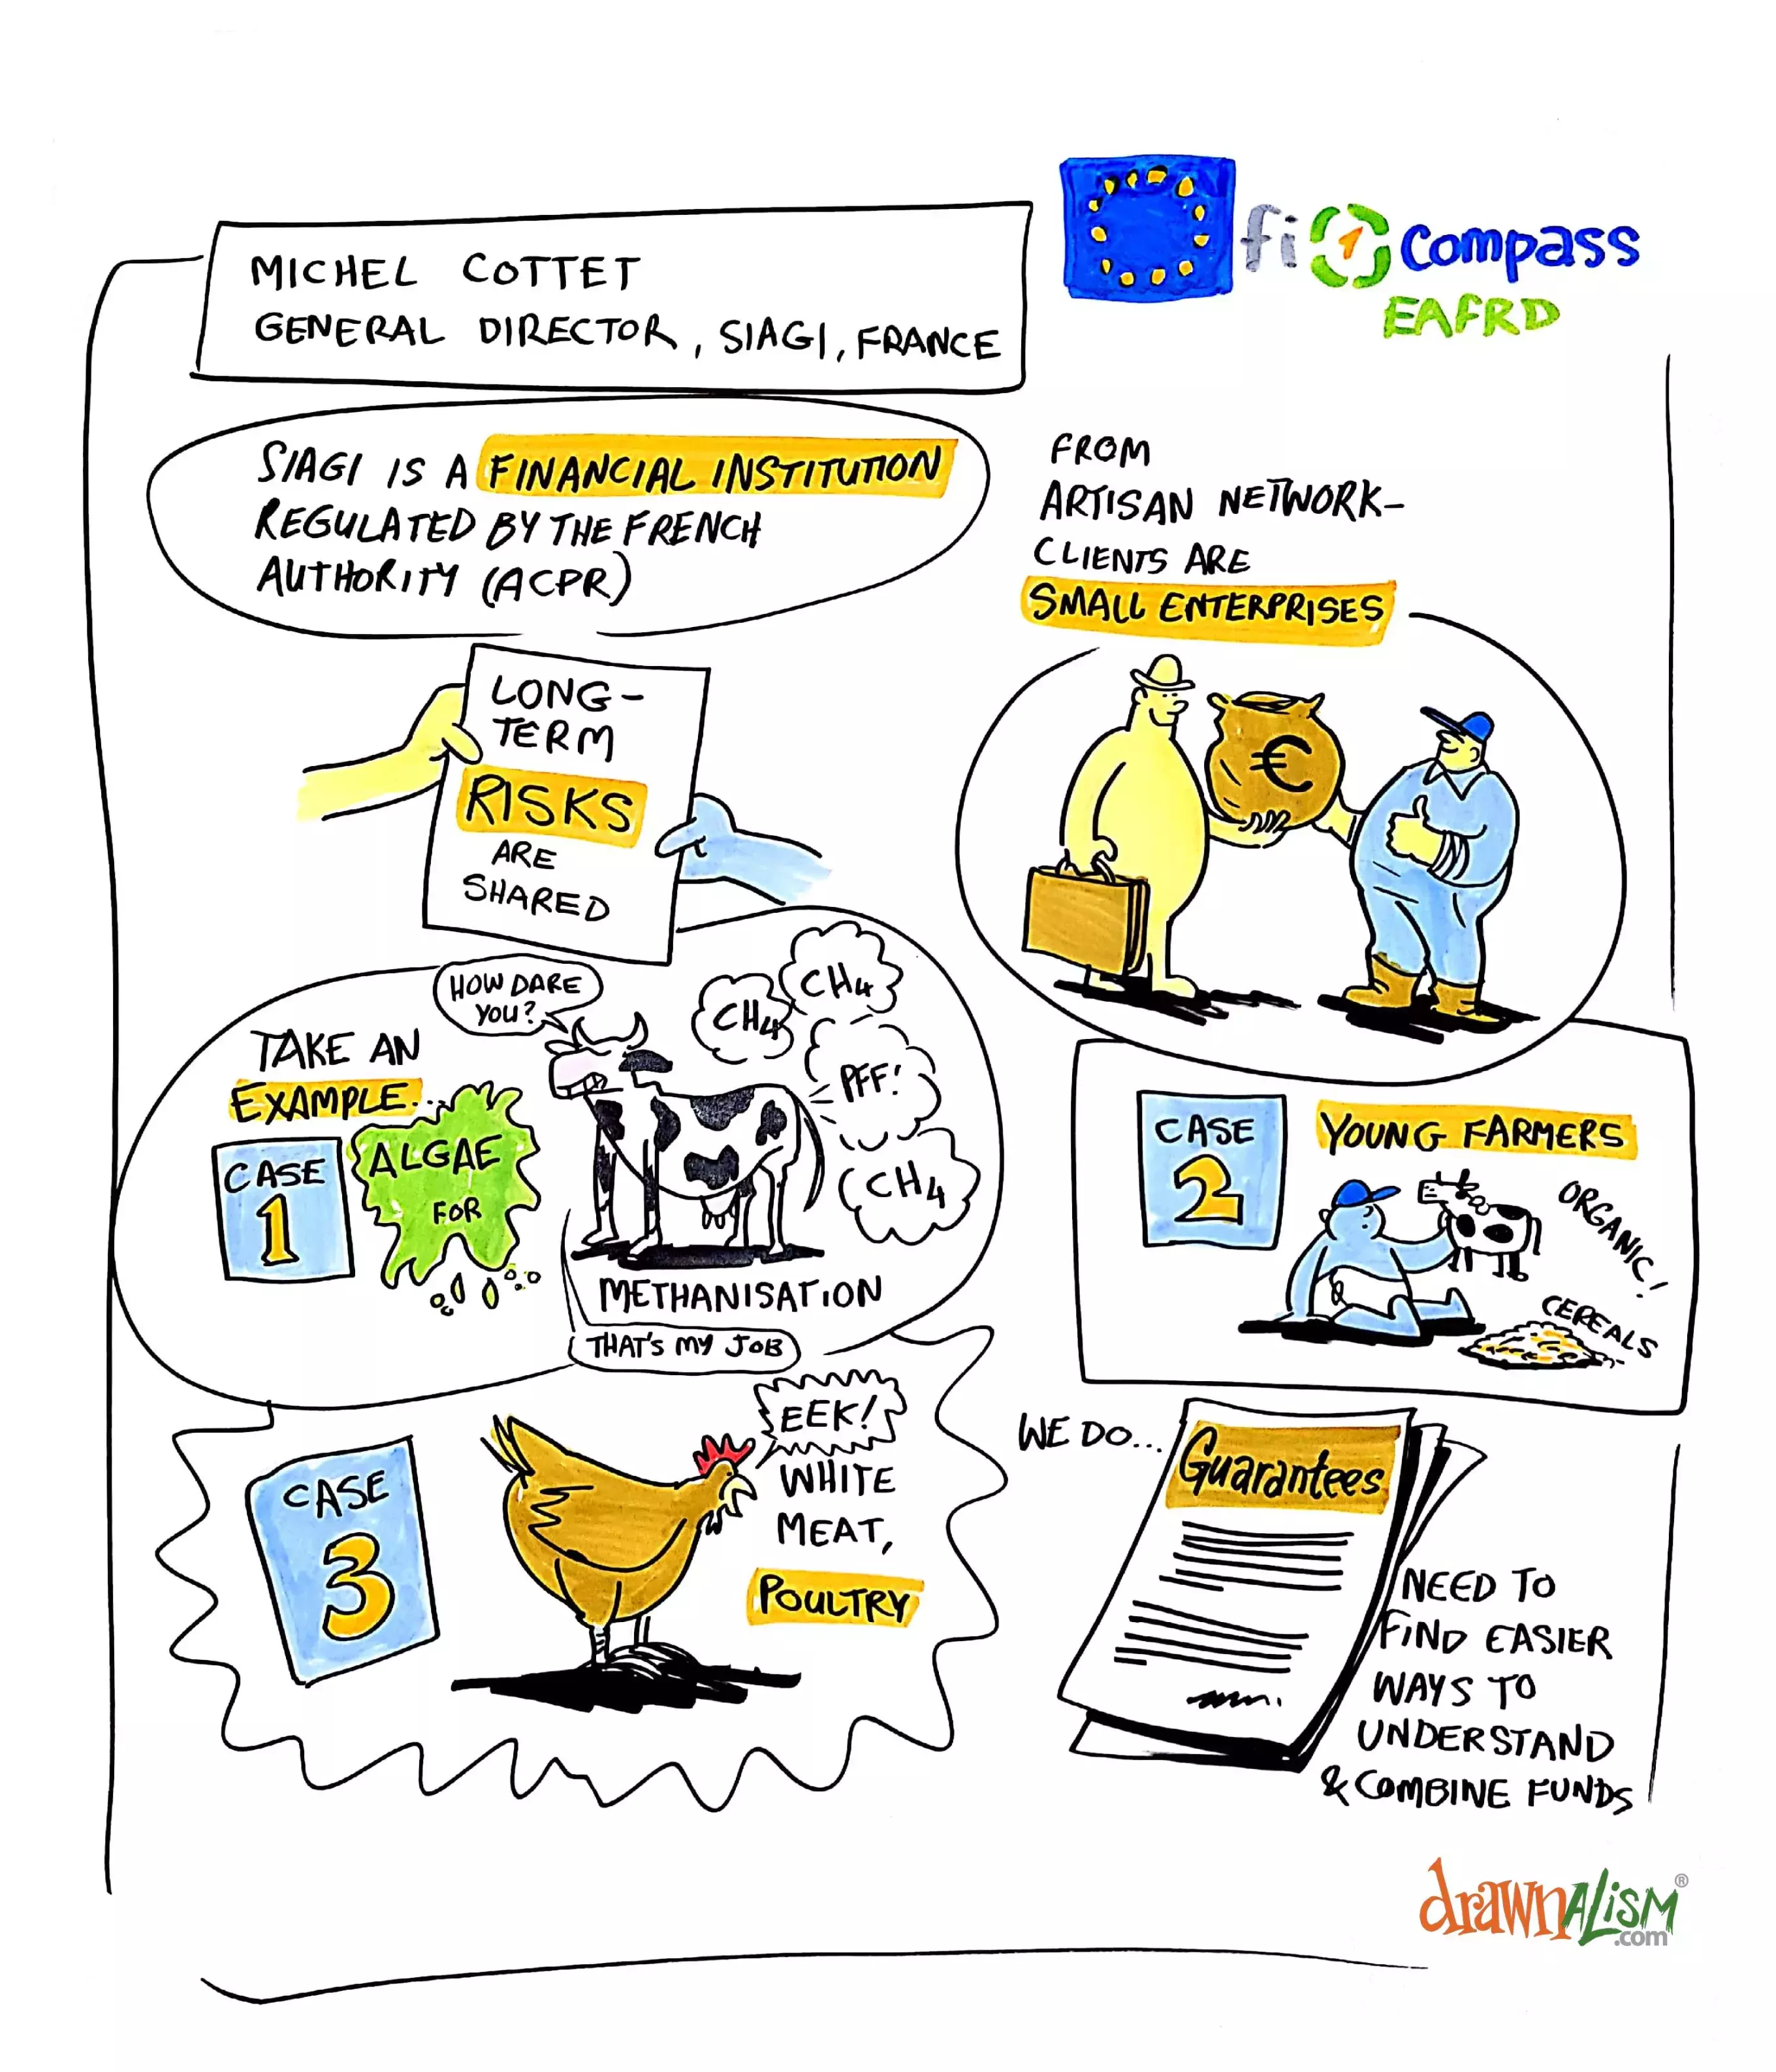 MICHEL COTTET
GENERAL DIRECTOR, SIAGI, FRANCE
fi compass
EAFRD
SIAGI IS A FINANCIAL INSTITUTION
REGULATED BY THE FRENCH
AUTHORITY (ACPR)
FROM
ARTISAN NETWORK-
CLIENTS ARE
SMALL ENTERPRISES
€
LONG-
TERM
RISKS
ARE
SHARED
TAKE AN
EXAMPLE...
CASE
1
ALGAE
FOR
HOW DARE
YOU?
CH4
CH4
PFF!
CH4
METHANISATION
THAT'S MY JOB
CASE
2
YOUNG FARMERS
ORGANIC!
CEREALS
CASE
3
EEK!
WHITE
MEAT,
POULTRY
WE DO...
Guarantees
NEED TO
FIND EASIER
WAYS TO
UNDERSTAND
& COMBINE FUNDS
drawnALiSM®
.com